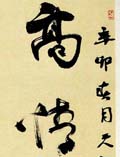 高情
辛卯春月天